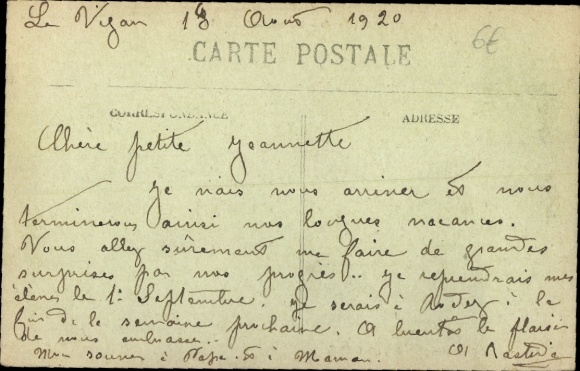 Le Vigan 18 Aout 1920
6€
CARTE POSTALE
CORRESPONDANCE
ADRESSE
Chère petite Jeannette
Je vais vous arriver et nous
terminerons ainsi nos longues vacances.
Vous allez sûrement me faire de grandes
surprises par vos progrès.. Je reprendrais mes
élèves le 1er Septembre. Je serais à Rodez à la
fin de la semaine prochaine. A bientôt le plaisir
de vous embrasser.
Mon souvenir à Papa et à Maman.